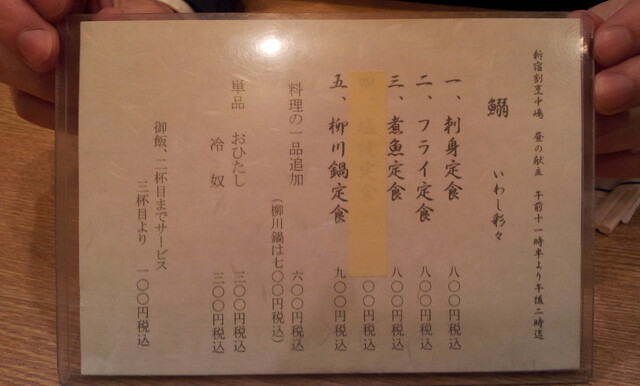 新宿割烹中嶋 昼の献立 午前十一時半より午後二時迄
鰯 いわし彩々
一、刺身定食 八〇〇円税込
二、フライ定食 八〇〇円税込
三、煮魚定食 八〇〇円税込
定食 〇〇円税込
五、柳川鍋定食 九〇〇円税込
料理の一品追加 六〇〇円税込
(柳川鍋は七〇〇円税込)
単品 おひたし 三〇〇円税込
冷奴 三〇〇円税込
御飯、二杯目までサービス
三杯目より 一〇〇円税込